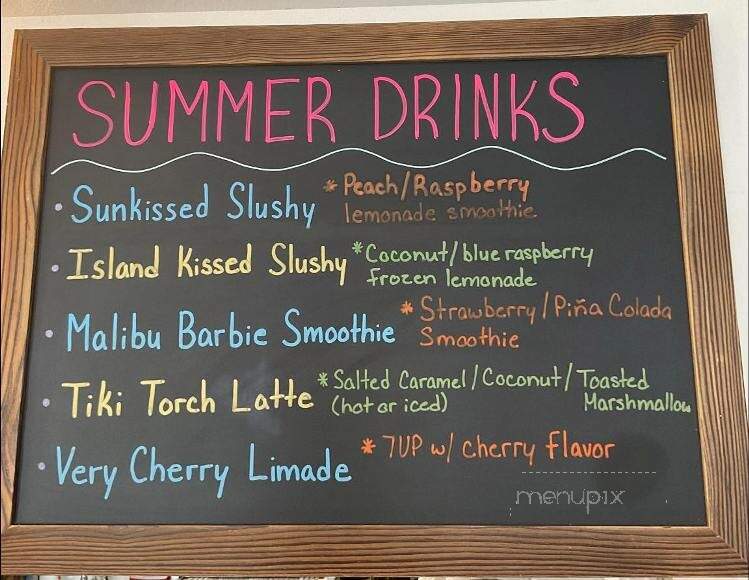 SUMMER DRINKS
• Sunkissed Slushy * Peach/Raspberry
lemonade smoothie
• Island Kissed Slushy * Coconut/blue raspberry
frozen lemonade
• Malibu Barbie Smoothie * Strawberry/Piña Colada
Smoothie
• Tiki Torch Latte * Salted Caramel/Coconut/Toasted
(hot or iced) Marshmallow
• Very Cherry Limade * 7UP w/ cherry flavor
menupix